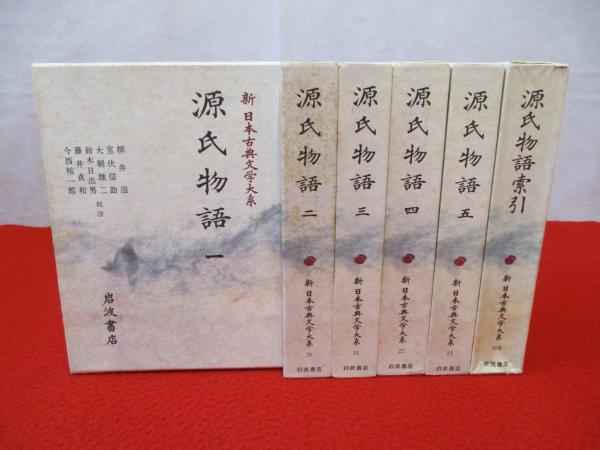 新 日本古典文学大系
源氏物語 一
柳井滋
室伏信助
大朝雄二
鈴木日出男
藤井貞和
今西祐一郎
校注
岩波書店
源氏物語 二
新 日本古典文学大系
20
岩波書店
源氏物語 三
新 日本古典文学大系
21
岩波書店
源氏物語 四
新 日本古典文学大系
22
岩波書店
源氏物語 五
新 日本古典文学大系
23
岩波書店
源氏物語索引
新 日本古典文学大系
岩波書店